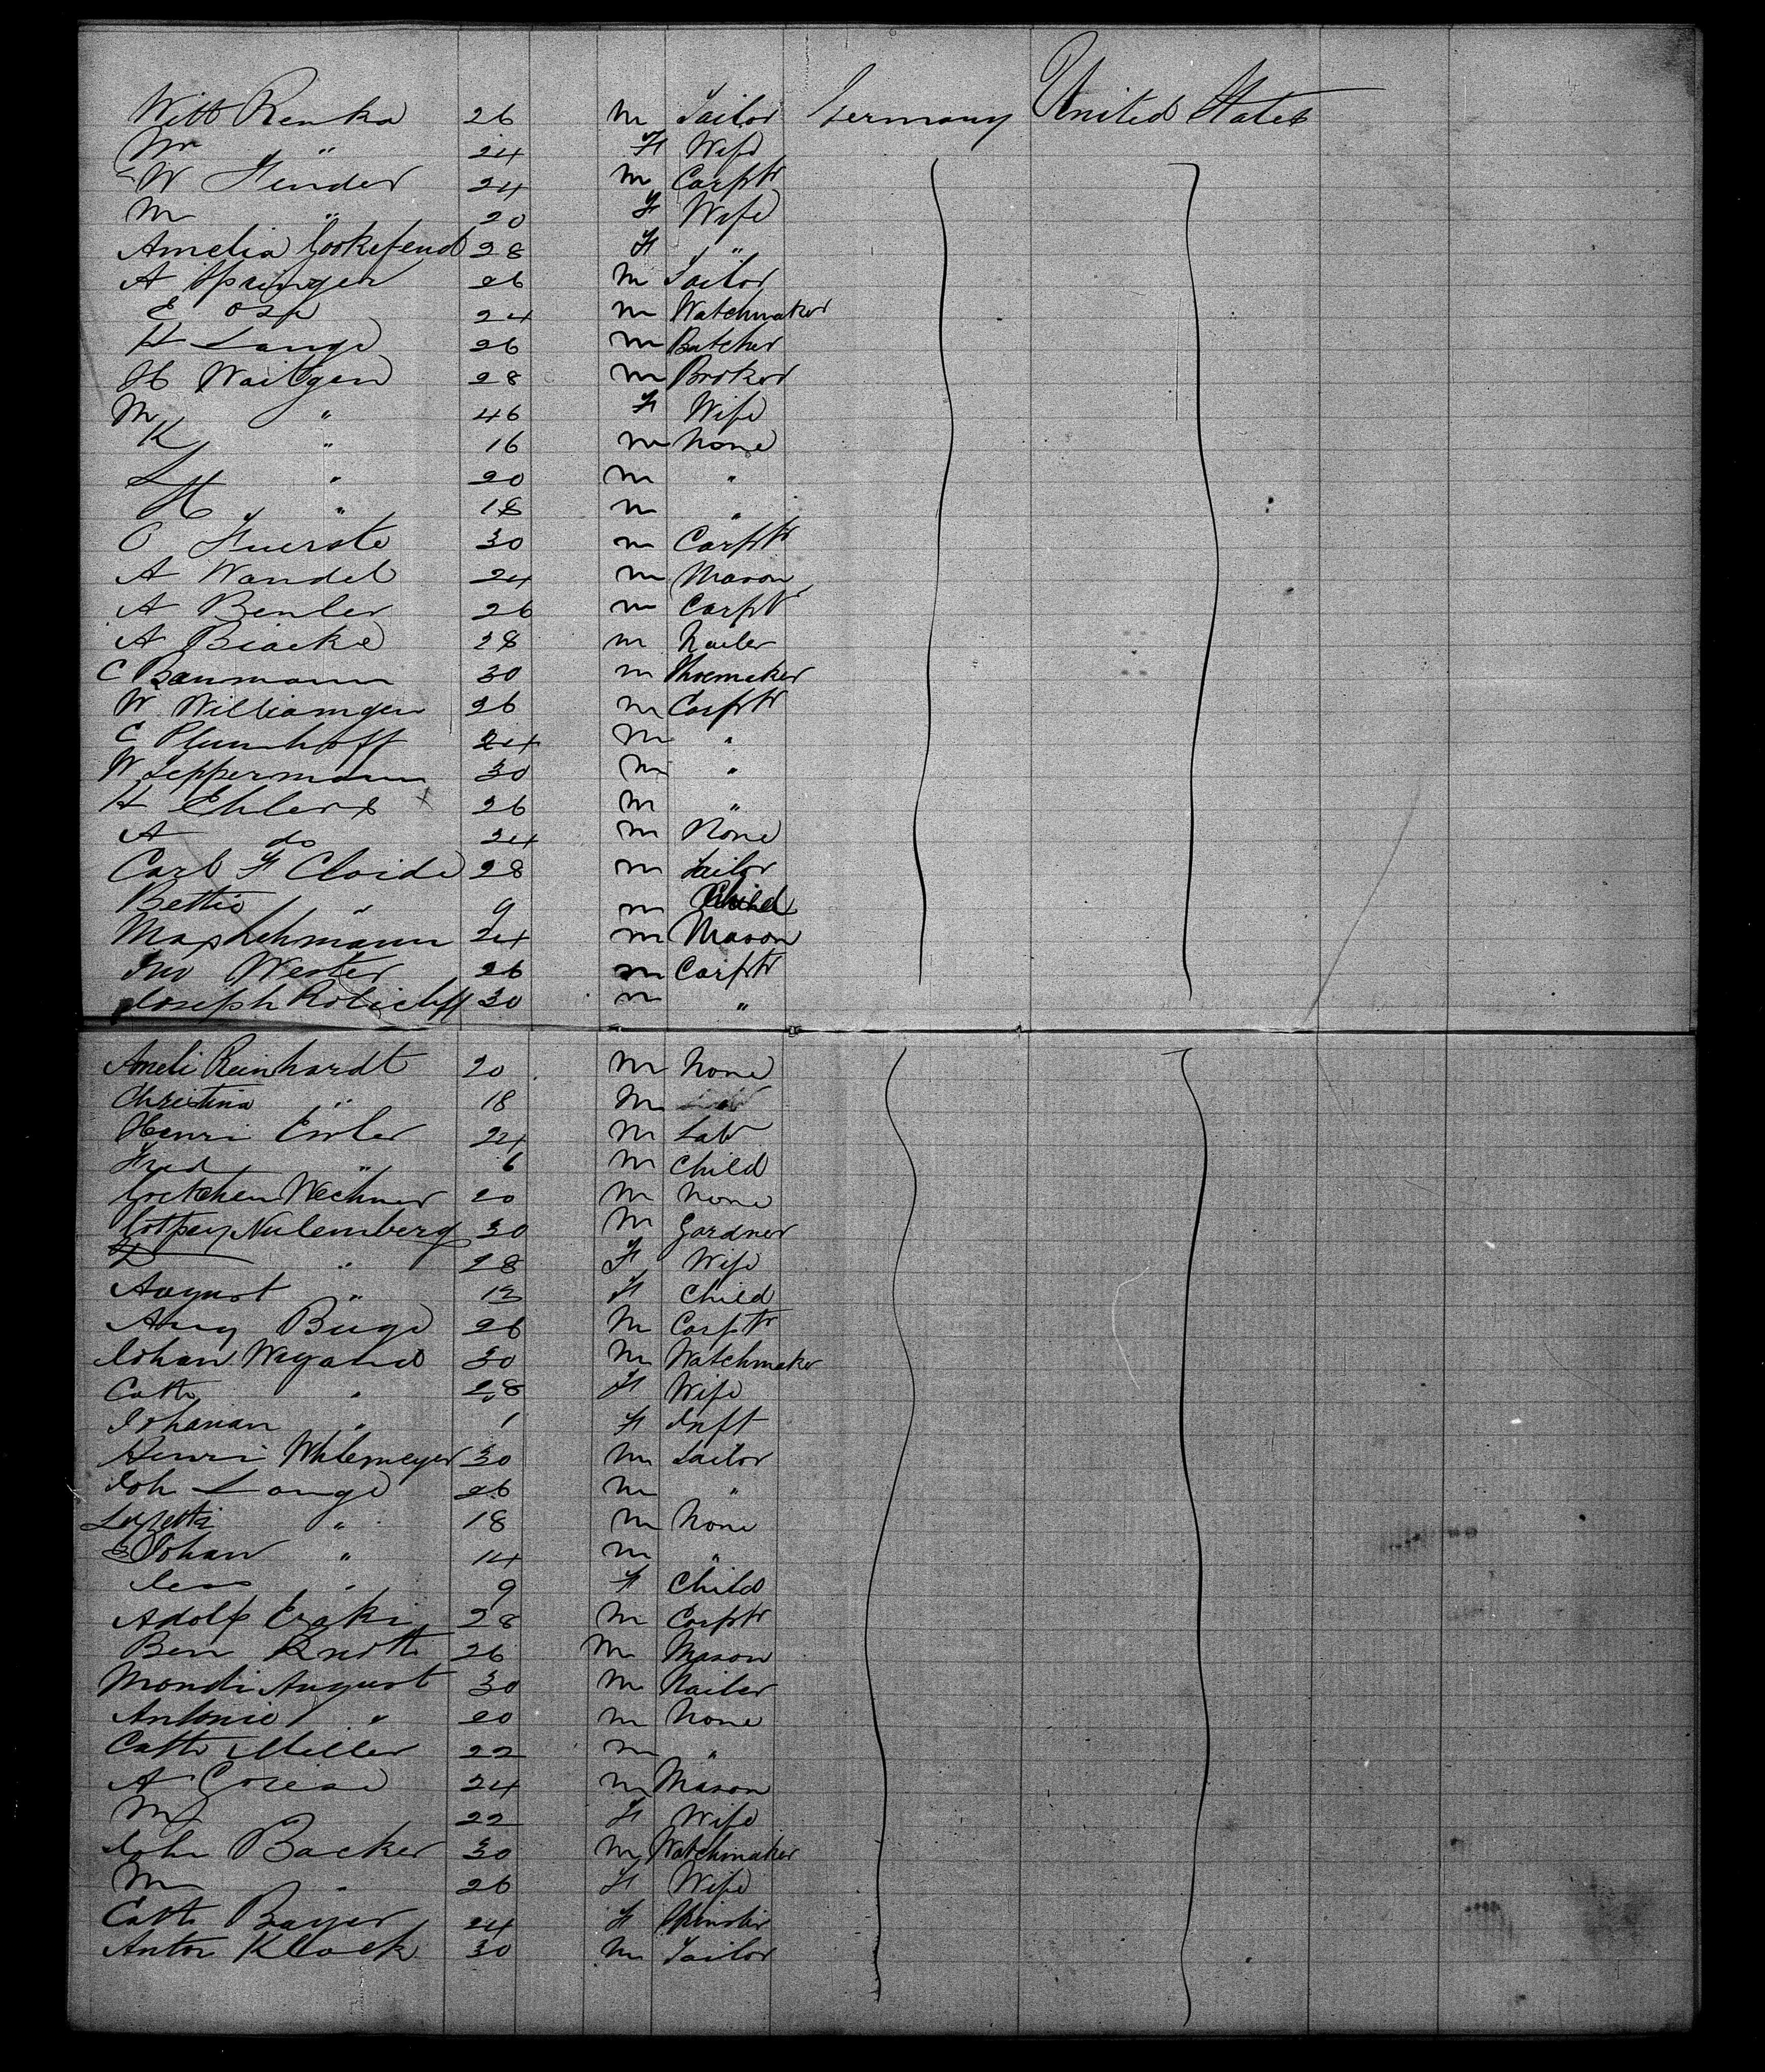 Witt Renka 26 m Tailor Germany United States
Mr " 24 F Wife
W Fender 24 m Carptr
M " 20 F Wife
Amelia Gookefend 28 F "
A Springer 26 m Tailor
E 24 m Watchmaker
H Lange 26 m Butcher
H Waitgen 28 m Broker
M " 46 F Wife
K " 16 m None
L " 20 m "
H " 18 m "
O Fuerste 30 m Carptr
A Wandel 24 m Mason
A Benler 26 m Carptr
A Biacke 28 m Nailer
C Baumann 30 m Shoemaker
W Williamgen 26 m Carptr
C Plumhoff 24 m "
W Leppermann 30 m "
H Ehlers x 26 m "
A do 24 m None
Carl F Cloide 28 m Tailor
Bettie " 9 m Child
Max Lehmann 24 m Mason
Jno Wester 26 m Carptr
Joseph 30 m "
Ameli Reinhardt 20 m None
Christina " 18 m
Henri Emler 24 m Lab
Fred " 6 m Child
Gretchen Wechner 20 m None
Nulemberg 30 m Gardner
" 28 F Wife
August " 12 F Child
Aug Buge 26 m Carptr
Johan Wayand 30 m Watchmaker
Cath " 28 F Wife
Johanan " 1 F Inft
Henri Whlemeyer 30 m Tailor
Joh Lange 26 m "
Lizetta " 18 m None
Johan " 14 m "
" 9 F Child
Adolf Erski 28 m Carptr
Ben Knoth 26 m Mason
Mondi August 30 m Nailer
Antonie " 20 m None
Cath Miller 22 m "
A 24 m Mason
M 22 F Wife
John Backer 30 m Watchmaker
M " 26 F Wife
Cath Bayer 24 F Spinster
Anton Klock 30 m Tailor